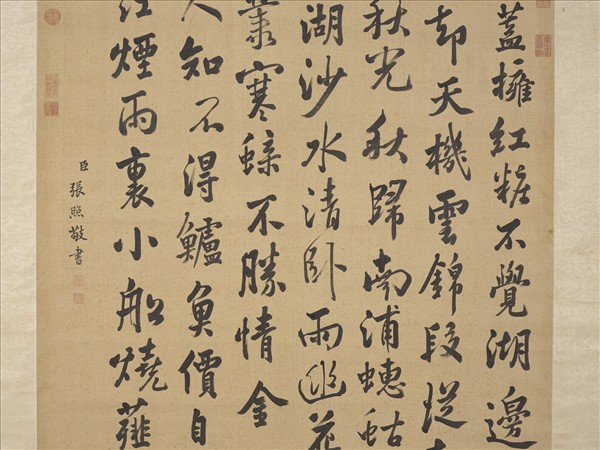 蓋擁紅粧不覺湖邊
却天機雲錦段從
秋光秋歸南浦蟪蛄
湖沙水清卧雨幽花
叢寒蜨不勝情金
人知不得鱸魚價自
江煙雨裏小船燒薤
臣張照敬書